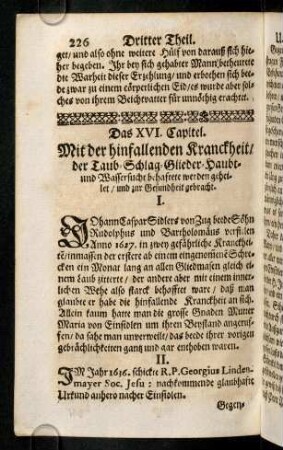 226 Dritter Theil.
get/ und also ohne weitere Hülf von darauß sich hie-
her begeben. Ihr bey sich gehabter Mann betheurete
die Warheit dieser Erzehlung/ und erbothen sich bee-
de zwar zu einem cörperlichen Eid/ es wurde aber sol-
ches von ihrem Beichtvatter für unnöthig erachtet.
Das XVI. Capitel.
Mit der hinfallenden Kranckheit/
der Taub-Schlag-Glieder-Haubt-
und Wassersucht behaftete werden gehei-
let/ und zur Gesundheit gebracht.
I.
JOhann Caspar Sidlers von Zug beede Söhn
Rudolphus und Bartholomäus verfielen
Anno 1627. in zwey gefährliche Kranckhei-
ten/ inmassen der erstere ab einem eingenom̃enē Schre-
cken ein Monat lang an allen Gliedmasen gleich ei-
nem laub zitterte/ der andere aber mit einem inner-
lichen Wehe also starck behafftet ware/ daß man
glaubte er habe die hinfallende Kranckheit an sich.
Allein kaum hatte man die grosse Gnaden Mutter
Maria von Einsidlen um ihren Beystand angeruf-
fen/ da sahe man unverweilt/ das beede ihrer vorigen
gebrächlichkeiten gantz und gar enthoben waren.
II.
IM Jahr 1636. schickte R.P. Georgius Linden-
mayer Soc. Jesu: nachkommende glaubhafte
Urkund anhero nacher Einsidlen.
Gegen-